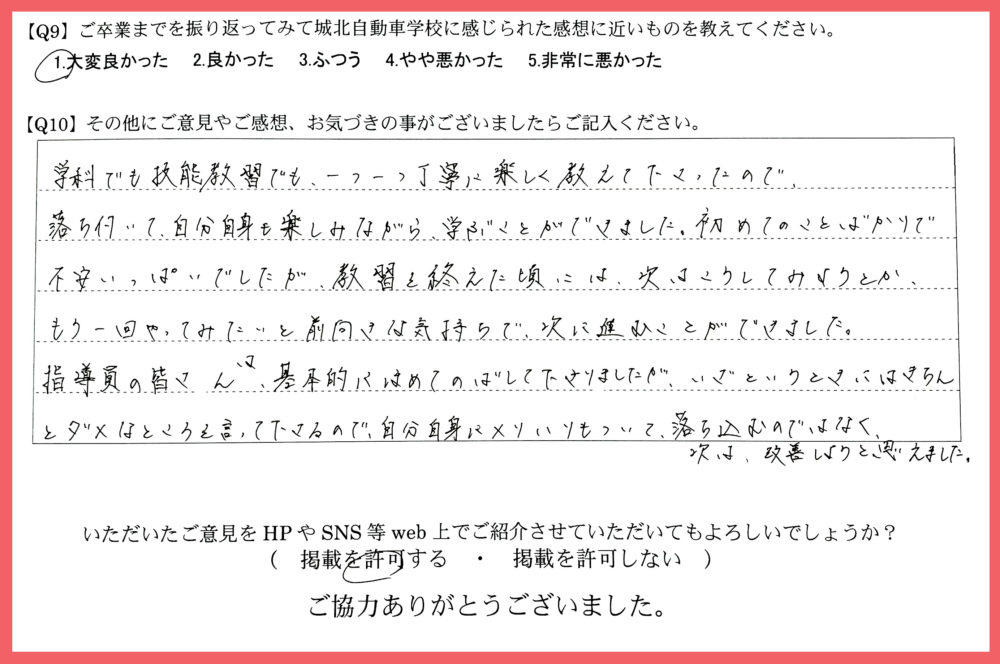 【Q9】ご卒業までを振り返ってみて城北自動車学校に感じられた感想に近いものを教えてください。
1.大変良かった 2.良かった 3.ふつう 4.やや悪かった 5.非常に悪かった
【Q10】その他にご意見やご感想、お気づきの事がございましたらご記入ください。
学科でも技能教習でも、一つ一つ丁寧に楽しく教えて下さったので、
落ち付いて、自分自身も楽しみながら、学ぶことができました。初めてのことばかりで
不安いっぱいでしたが、教習を終えた頃には、次はこうしてみようとか、
もう一回やってみたいと前向きな気持ちで、次に進むことができました。
指導員の皆さんは、基本的にほめてのばして下さりましたが、いざというときにはきちん
とダメなところを言って下さるので、自分自身にメリハリもついて、落ち込むのではなく、
次は、改善しようと思えました。
いただいたご意見をHPやSNS等web上でご紹介させていただいてもよろしいでしょうか?
( 掲載を許可する ・ 掲載を許可しない )
ご協力ありがとうございました。